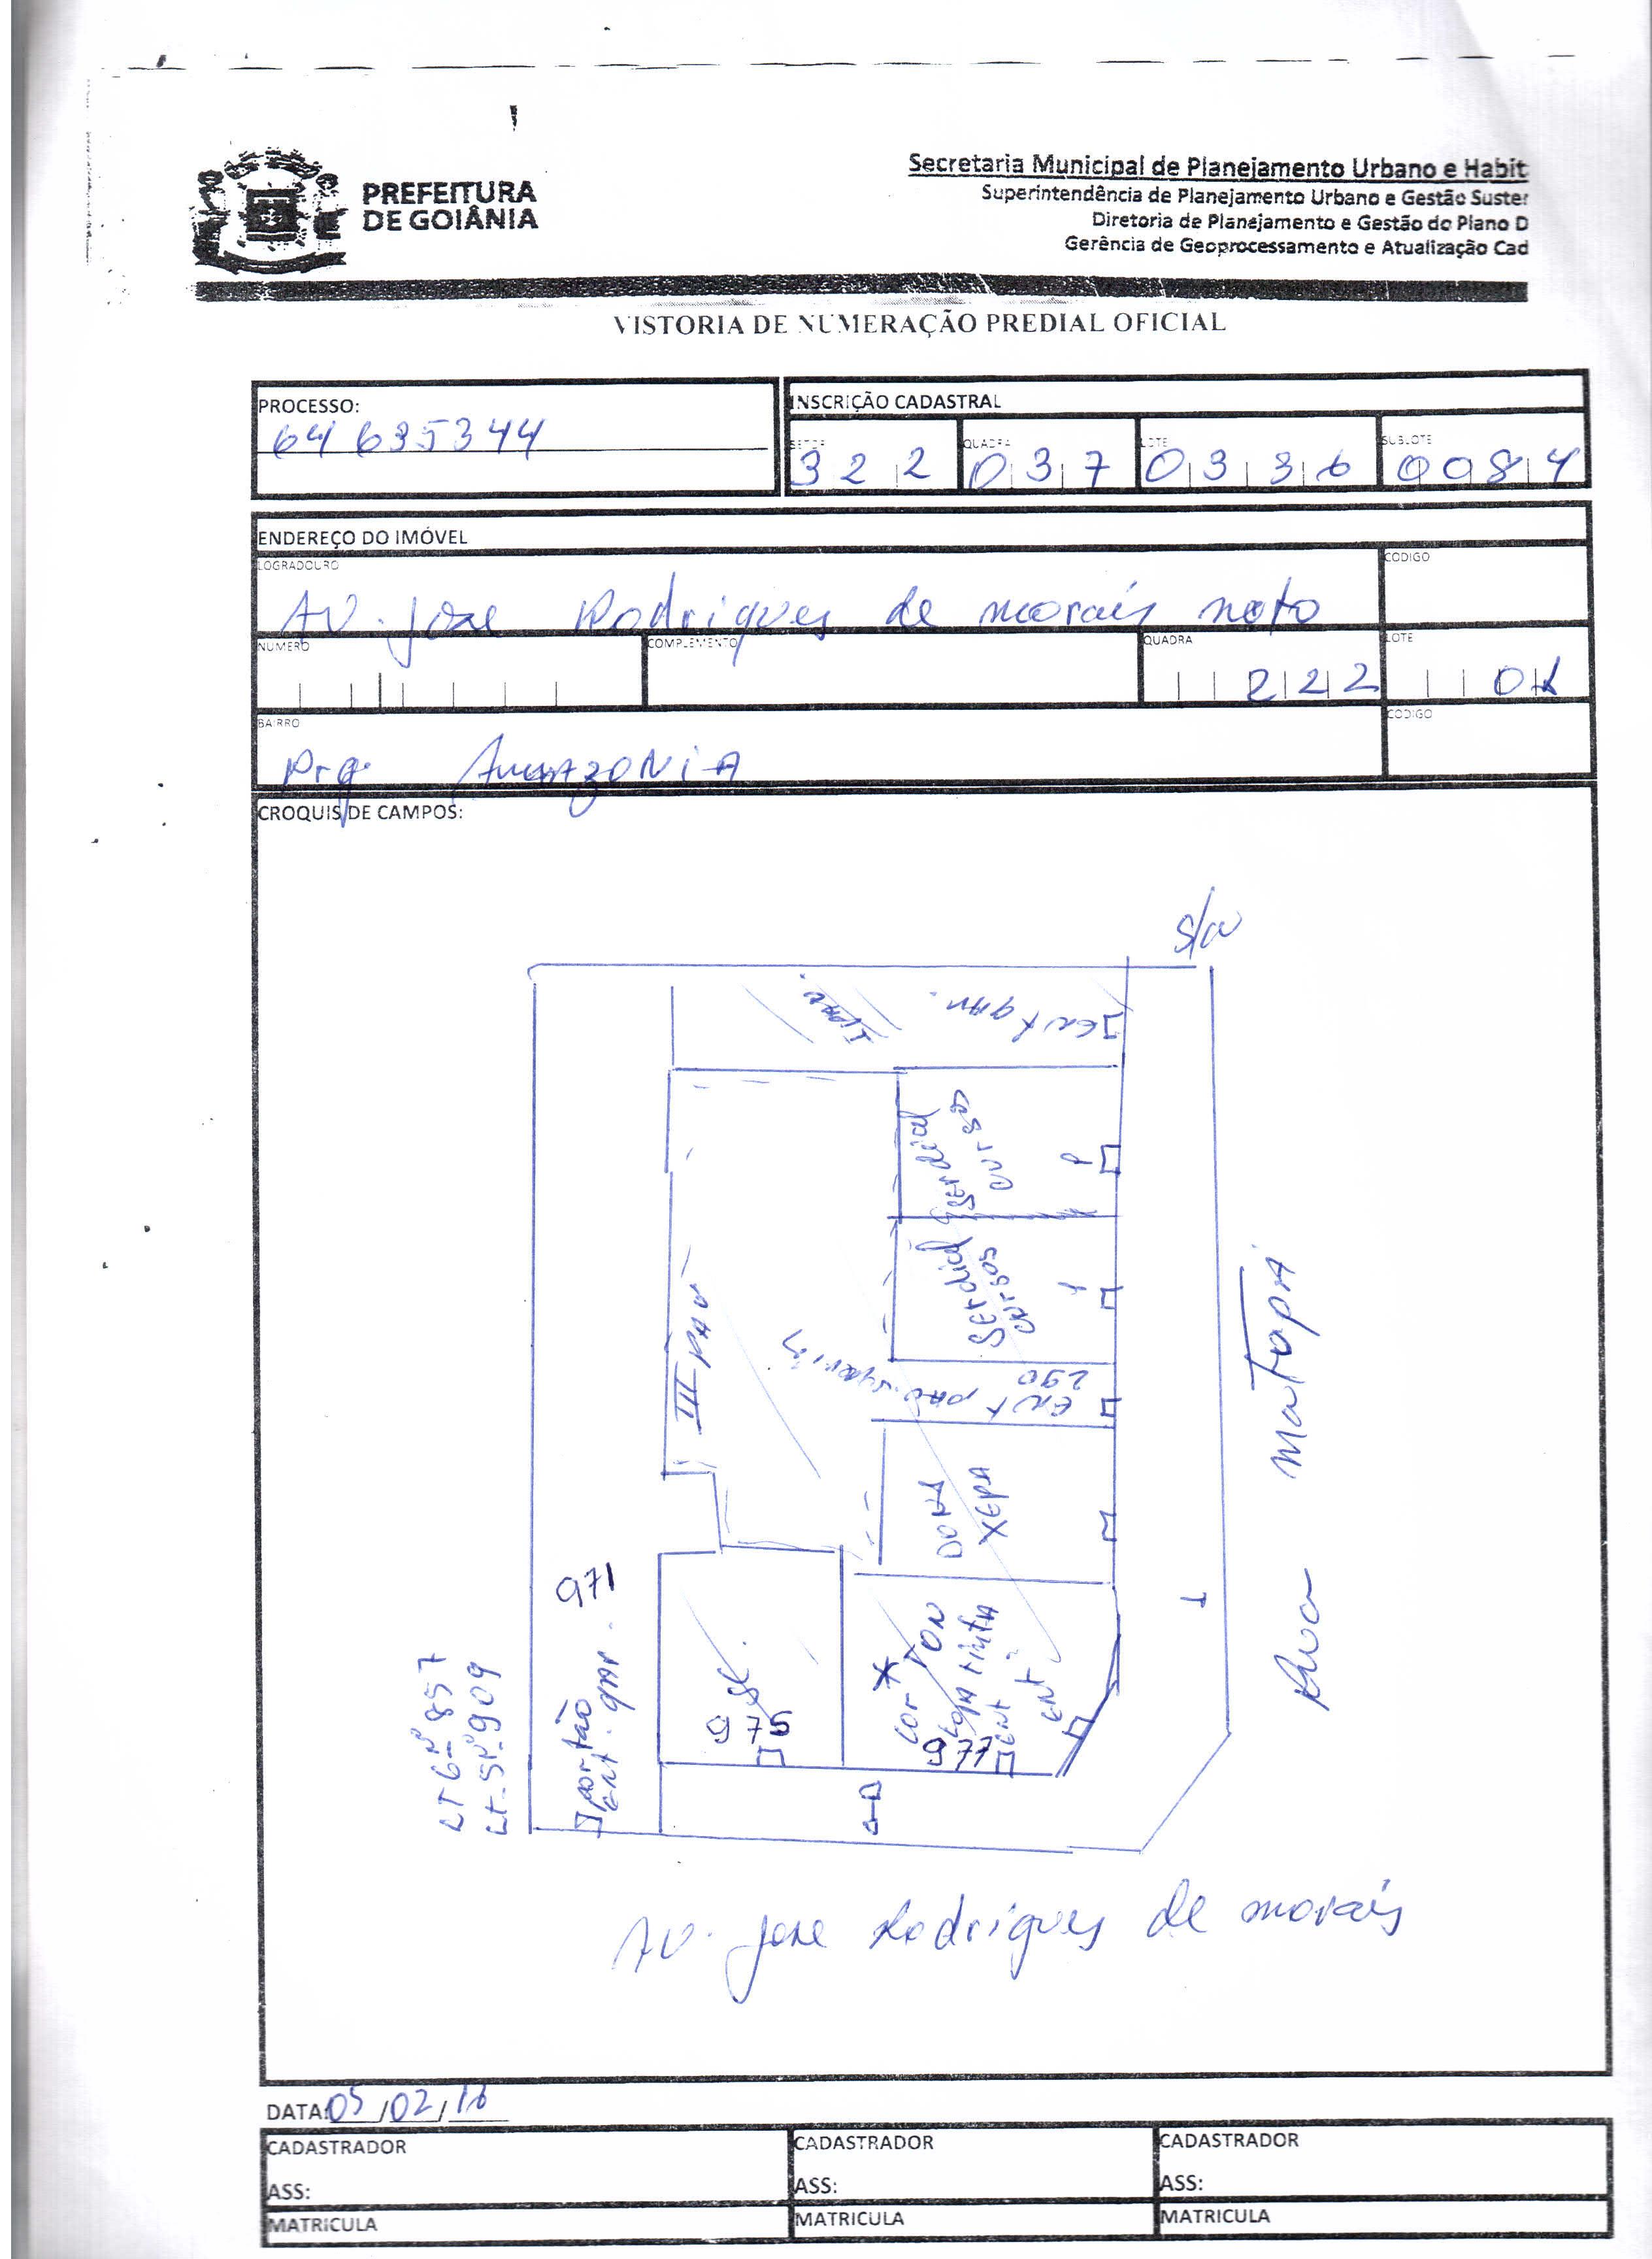 PREFEITURA
DE GOIÂNIA
Secretaria Municipal de Planejamento Urbano e Habit
Superintendência de Planejamento Urbano e Gestão Suster
Diretoria de Planejamento e Gestão do Plano D
Gerência de Geoprocessamento e Atualização Cad
VISTORIA DE NUMERAÇÃO PREDIAL OFICIAL
PROCESSO:
64635344
INSCRIÇÃO CADASTRAL
SETOR
322
QUADRA
037
LOTE
0336
SUBLOTE
0084
ENDEREÇO DO IMÓVEL
LOGRADOURO
AV. Jose Rodrigues de morais neto
CODIGO
NUMERO
COMPLEMENTO
QUADRA
222
LOTE
01
BAIRRO
Prq. AmAzONiA
CODIGO
CROQUIS DE CAMPOS:
S/N
Ent gar.
Serdial
cursos
Serdial
cursos
III PAV
Ent pav. superior
290
DONA
XEPA
971
portão
ent. gar.
LT 6 Nº 857
Lt-5 Nº 909
SL.
975
COR * TON
Loja tinta
ENT
ENT
977
Rua maTapi
AV. Jose Rodrigues de morais
DATA: 05/02/16
CADASTRADOR
ASS:
MATRICULA
CADASTRADOR
ASS:
MATRICULA
CADASTRADOR
ASS:
MATRICULA